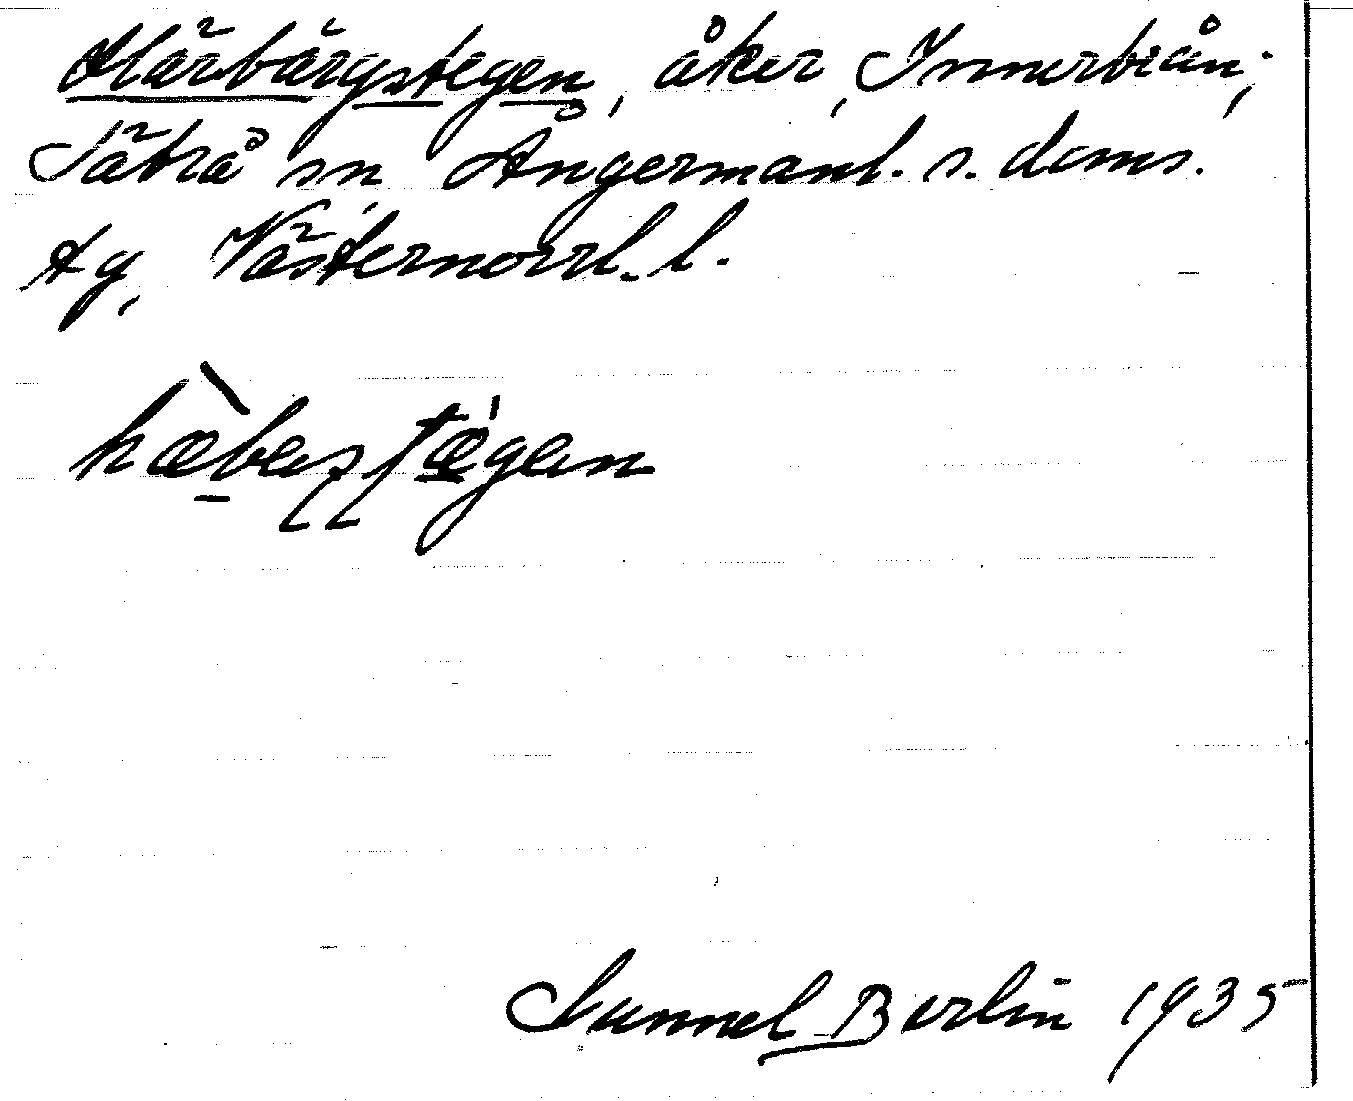 Härbärgstegen, åker, Innerbrån;
Säbrå sn, Ångermanl. s. doms.
tg, Västernorrl. l.
hæ̀bæsstǽgan
Gunnel Berlin 1935